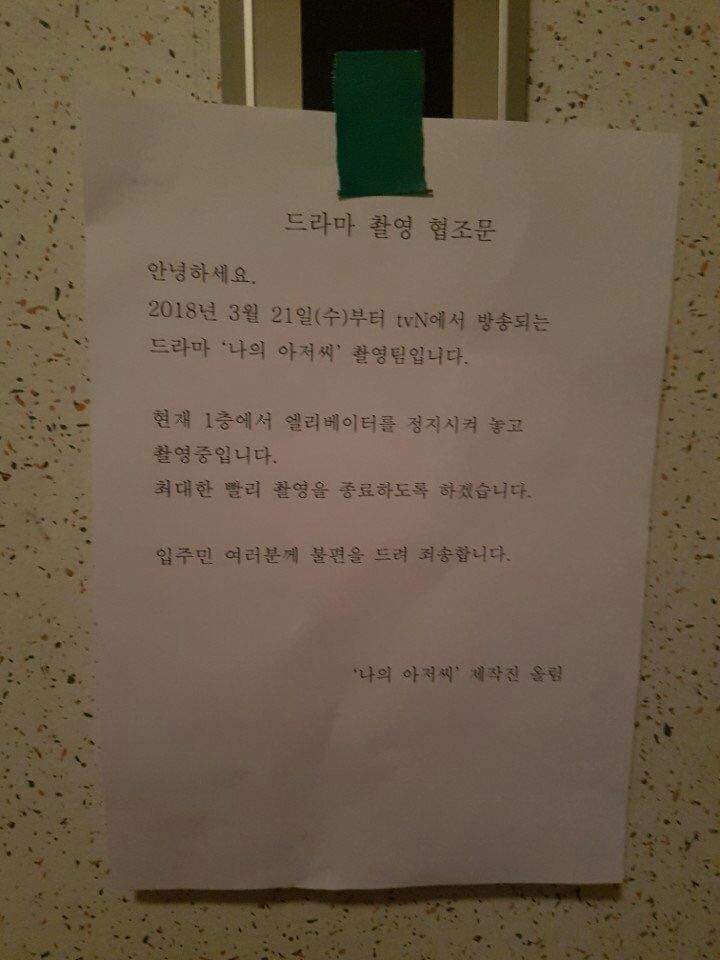 드라마 촬영 협조문
안녕하세요.
2018년 3월 21일(수)부터 tvN에서 방송되는
드라마 '나의 아저씨' 촬영팀입니다.
현재 1층에서 엘리베이터를 정지시켜 놓고
촬영중입니다.
최대한 빨리 촬영을 종료하도록 하겠습니다.
입주민 여러분께 불편을 드려 죄송합니다.
'나의 아저씨' 제작진 올림